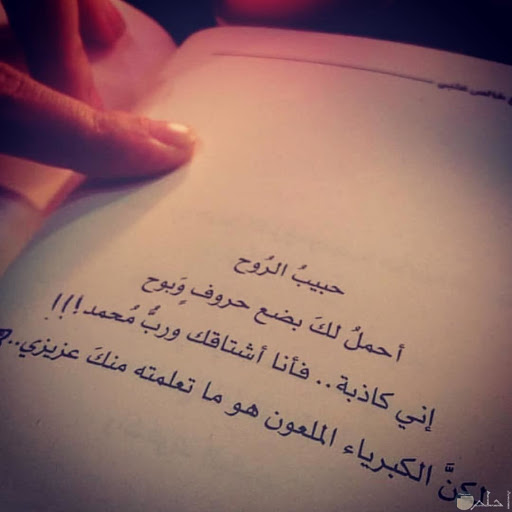 خالص عتبي
حبيبُ الرُوح
أحملُ لكَ بضع حروف وَبوح
إني كاذبة.. فأنا أشتاقك وربُّ مُحمد!!!
لكنَّ الكبرياء الملعون هو ما تعلمته منكَ عزيزي..
أحلم